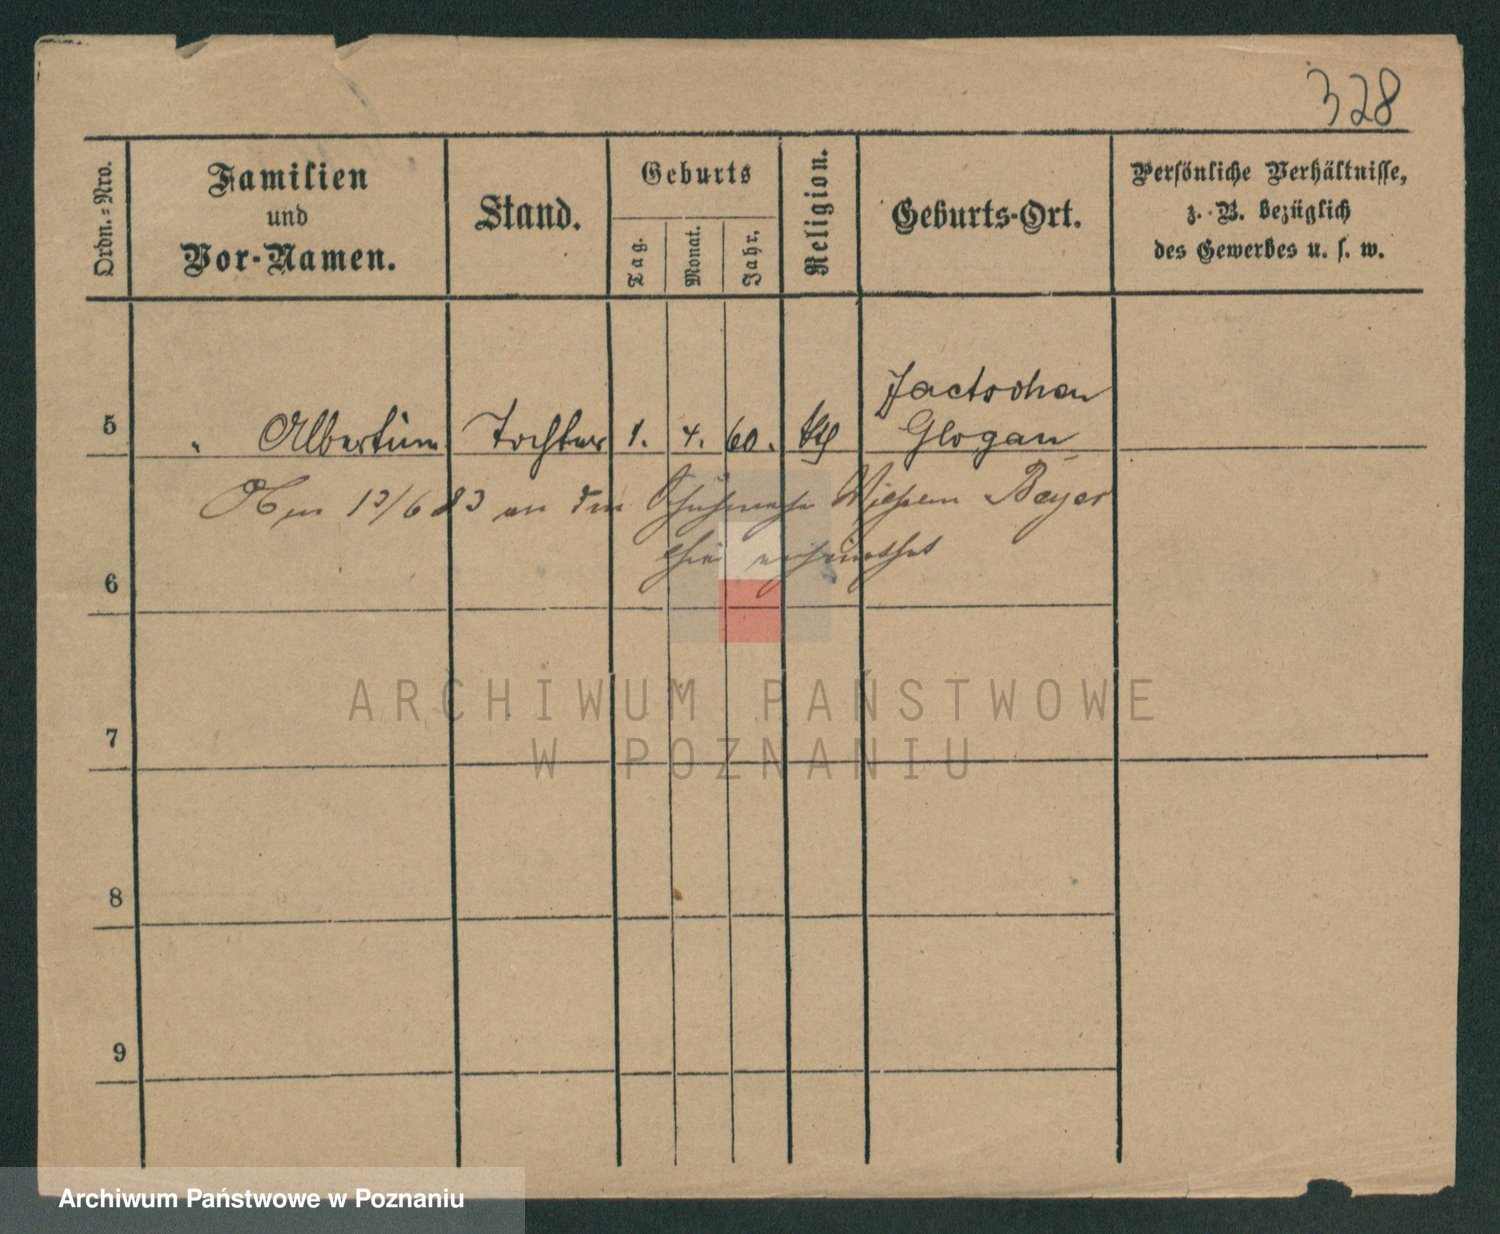 328
Ordn.=Nro.
Familien
und
Vor-Namen.
Stand.
Geburts
Tag.
Monat.
Jahr.
Religion.
Geburts-Ort.
Persönliche Verhältnisse,
z. B. bezüglich
des Gewerbes u. s. w.
5 " Albertine Tochter 1. 4. 60.
Glogau
am 13/6 83 an den Wilhelm Beyer
hier verheirathet
6
7
8
9
ARCHIWUM PAŃSTWOWE
W POZNANIU
Archiwum Państwowe w Poznaniu